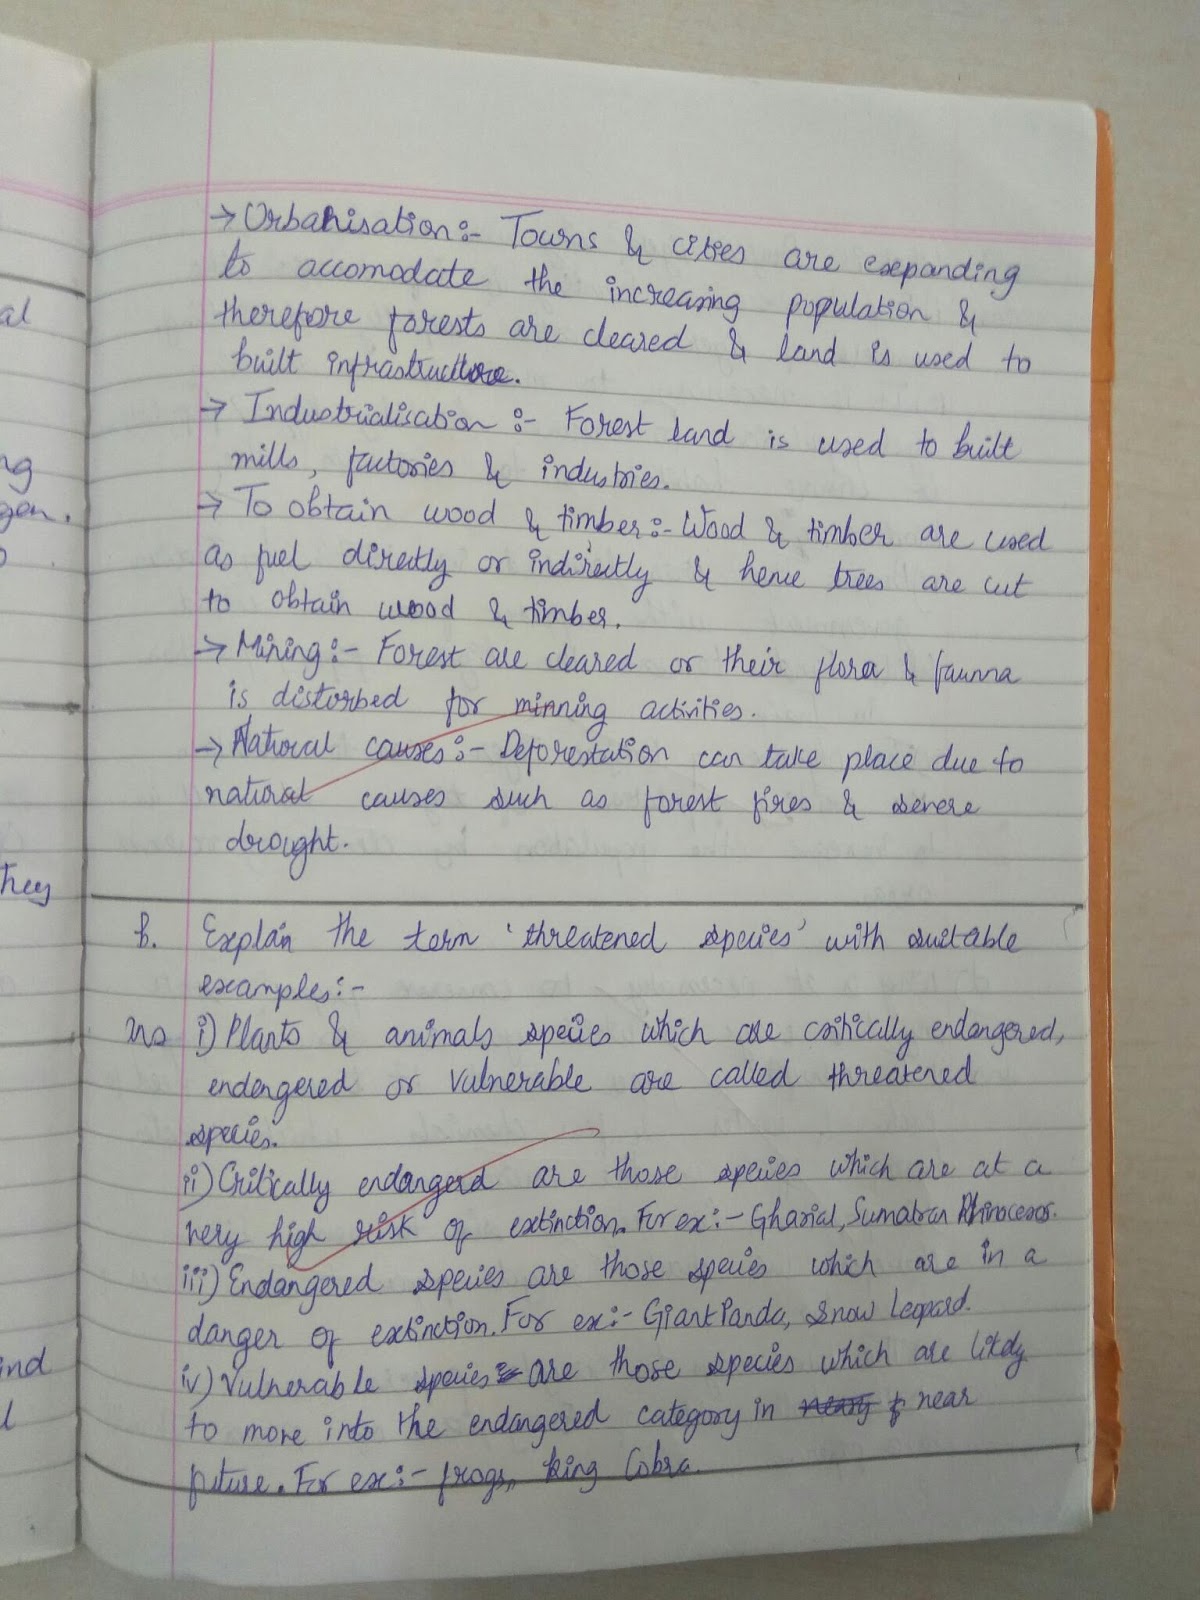 al
ng
gen.
they
ind
→ Urbanisation:- Towns & cities are expanding
to accomodate the increasing population &
therefore forests are cleared & land is used to
built infrastructure.
→ Industrialisation :- Forest land is used to built
mills, factories & industries.
→ To obtain wood & timber:- Wood & timber are used
as fuel directly or indirectly & hence trees are cut
to obtain wood & timber.
→ Mining:- Forest are cleared or their flora & faunna
is distorbed for minning activities.
→ Natural causes:- Deforestation can take place due to
natural causes such as forest fires & severe
drought.
b. Explain the term 'threatened species' with suitable
examples:-
ns i) Plants & animals species which are critically endangered,
endengered or vulnerable are called threatened
species.
ii) Critically endangerd are those species which are at a
very high risk of extinction. For ex:- Gharial, Sumatran Rhinoceros.
iii) Endangered species are those species which are in a
danger of extinction. For ex:- Giant Panda, Snow Leopard.
iv) Vulnerable species are those species which are likely
to move into the endangered category in near
future. For ex:- frogs, king Cobra.